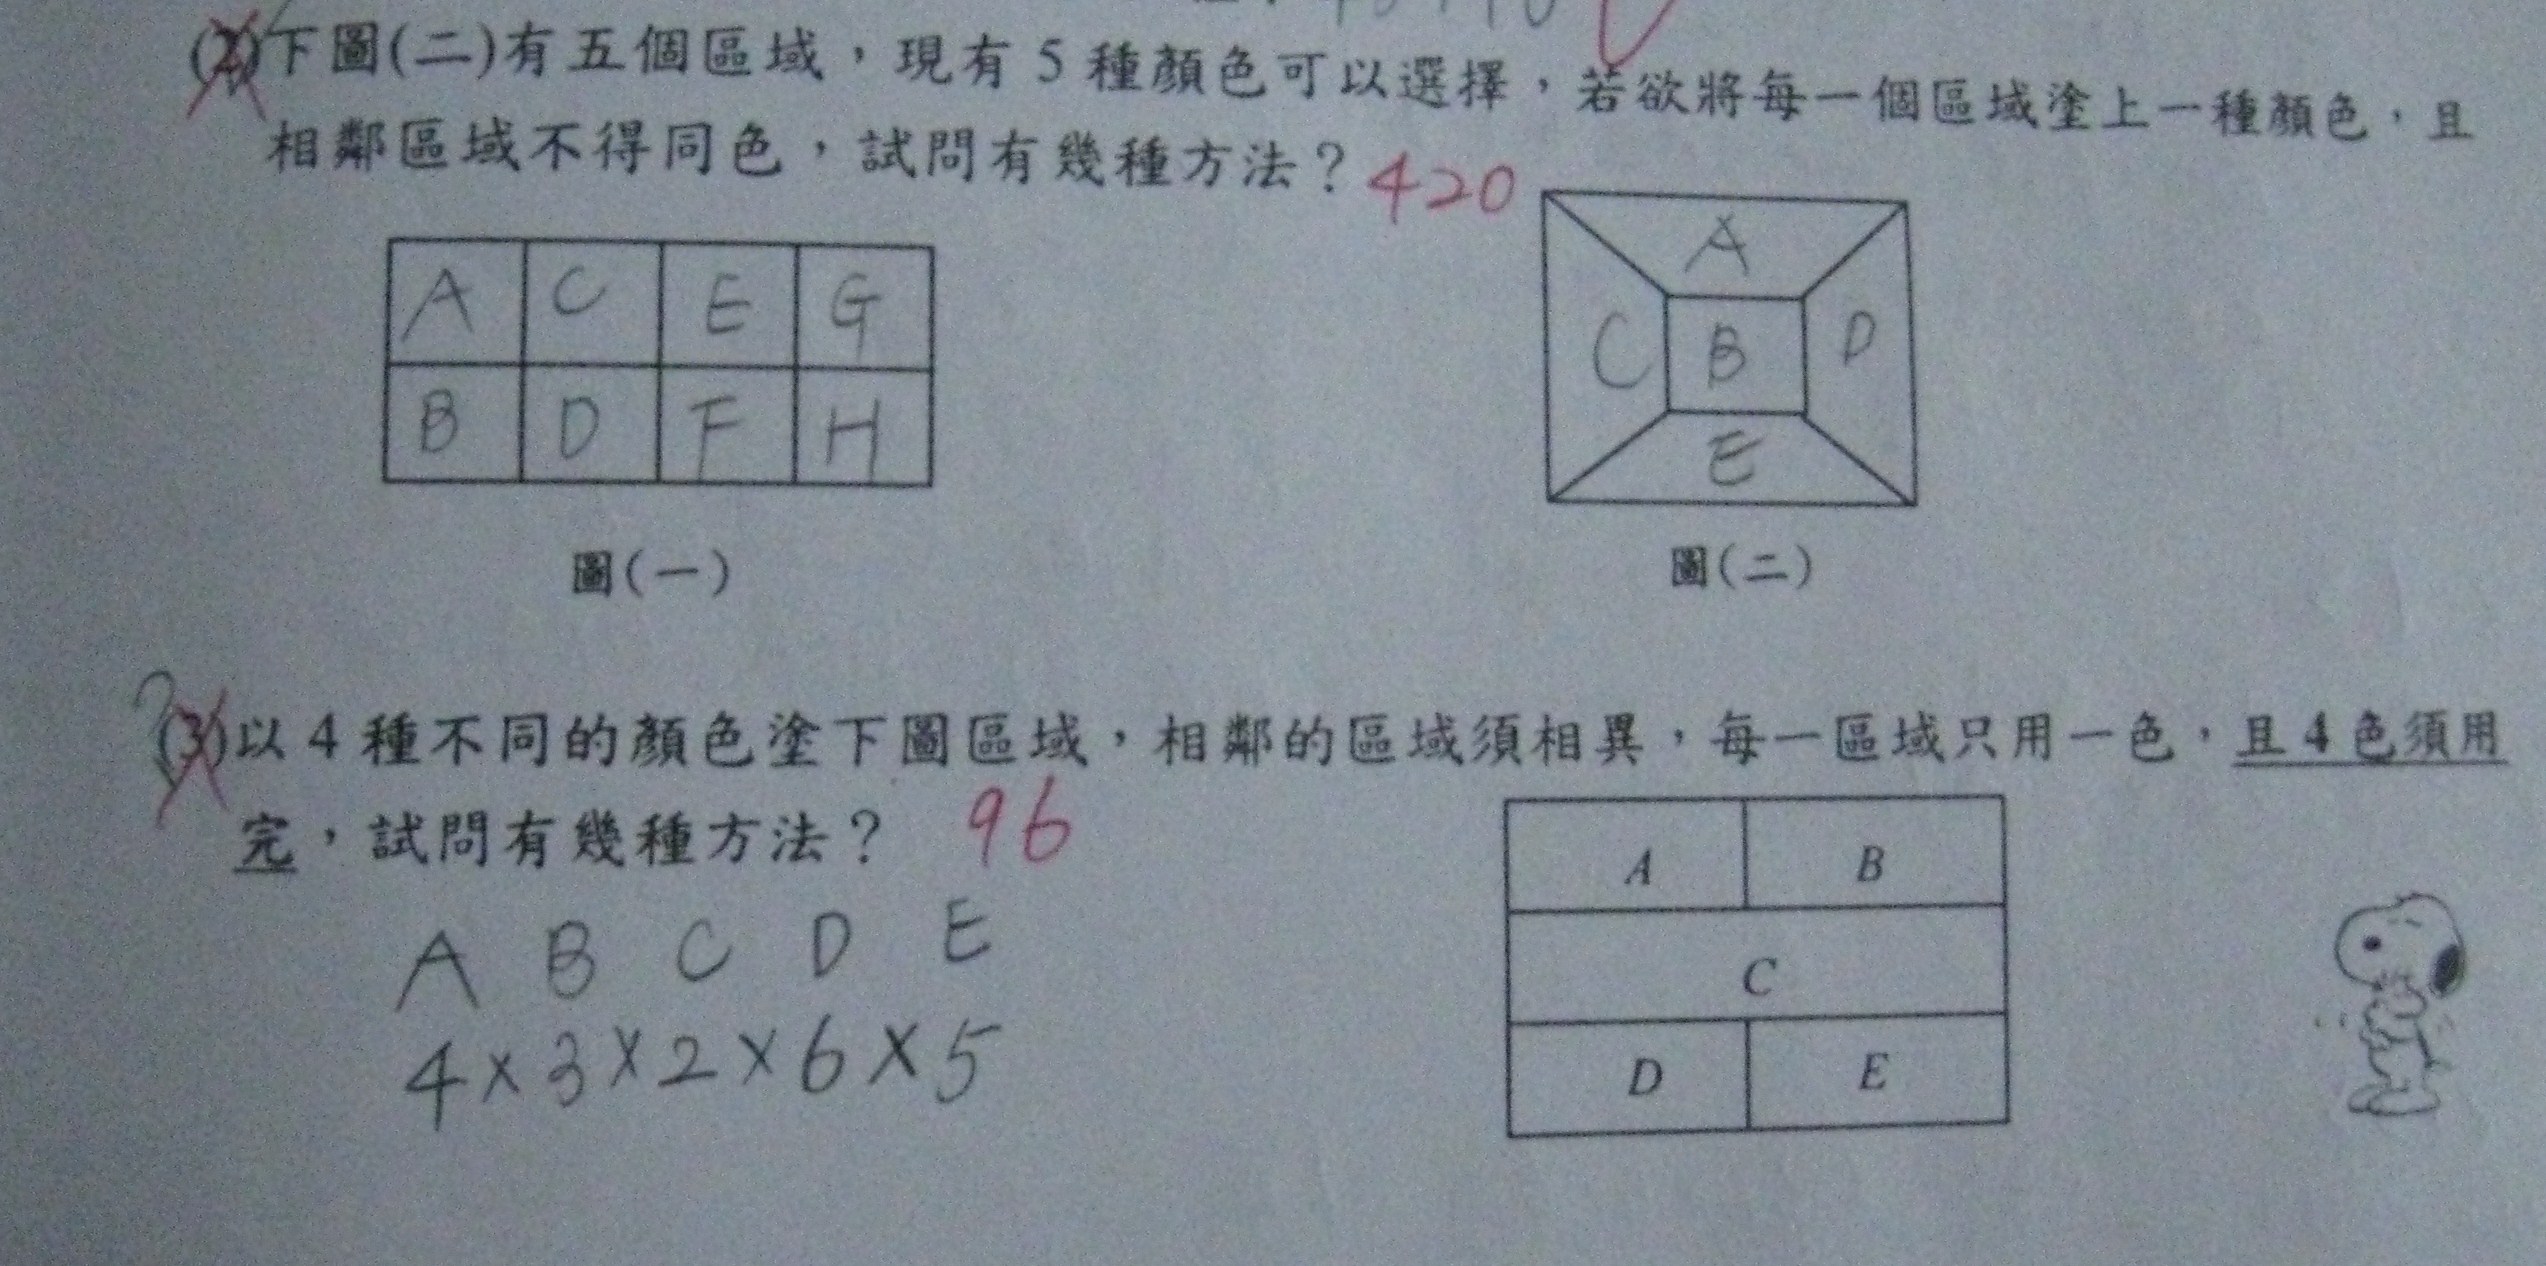 (2)下圖(二)有五個區域，現有 5 種顏色可以選擇，若欲將每一個區域塗上一種顏色，且
相鄰區域不得同色，試問有幾種方法？ 420
A C E G
B D F H
圖(一)
A
C B D
E
圖(二)
? (3)以 4 種不同的顏色塗下圖區域，相鄰的區域須相異，每一區域只用一色，且 4 色須用
完，試問有幾種方法？ 96
A B C D E
4×3×2×6×5
A B
C
D E